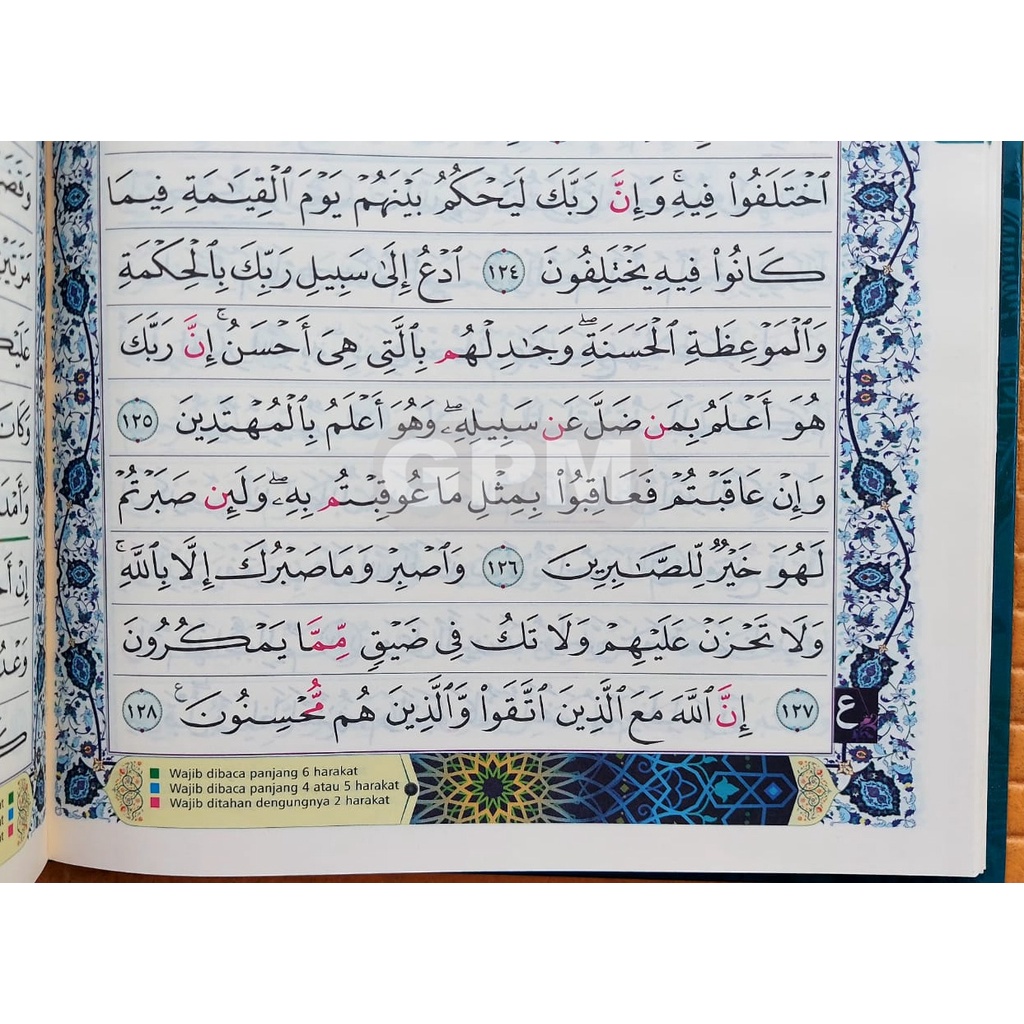 ٱخْتَلَفُوا۟ فِيهِ ۚ وَإِنَّ رَبَّكَ لَيَحْكُمُ بَيْنَهُمْ يَوْمَ ٱلْقِيَـٰمَةِ فِيمَا
كَانُوا۟ فِيهِ يَخْتَلِفُونَ ١٢٤ ٱدْعُ إِلَىٰ سَبِيلِ رَبِّكَ بِٱلْحِكْمَةِ
وَٱلْمَوْعِظَةِ ٱلْحَسَنَةِ ۖ وَجَـٰدِلْهُم بِٱلَّتِى هِىَ أَحْسَنُ ۚ إِنَّ رَبَّكَ
هُوَ أَعْلَمُ بِمَن ضَلَّ عَن سَبِيلِهِۦ ۖ وَهُوَ أَعْلَمُ بِٱلْمُهْتَدِينَ ١٢٥
وَإِنْ عَاقَبْتُمْ فَعَاقِبُوا۟ بِمِثْلِ مَا عُوقِبْتُم بِهِۦ ۖ وَلَئِن صَبَرْتُمْ
لَهُوَ خَيْرٌ لِّلصَّـٰبِرِينَ ١٢٦ وَٱصْبِرْ وَمَا صَبْرُكَ إِلَّا بِٱللَّهِ ۚ
وَلَا تَحْزَنْ عَلَيْهِمْ وَلَا تَكُ فِى ضَيْقٍ مِّمَّا يَمْكُرُونَ
١٢٧ إِنَّ ٱللَّهَ مَعَ ٱلَّذِينَ ٱتَّقَوا۟ وَّٱلَّذِينَ هُم مُّحْسِنُونَ ١٢٨
ع
GPM
Wajib dibaca panjang 6 harakat
Wajib dibaca panjang 4 atau 5 harakat
Wajib ditahan dengungnya 2 harakat